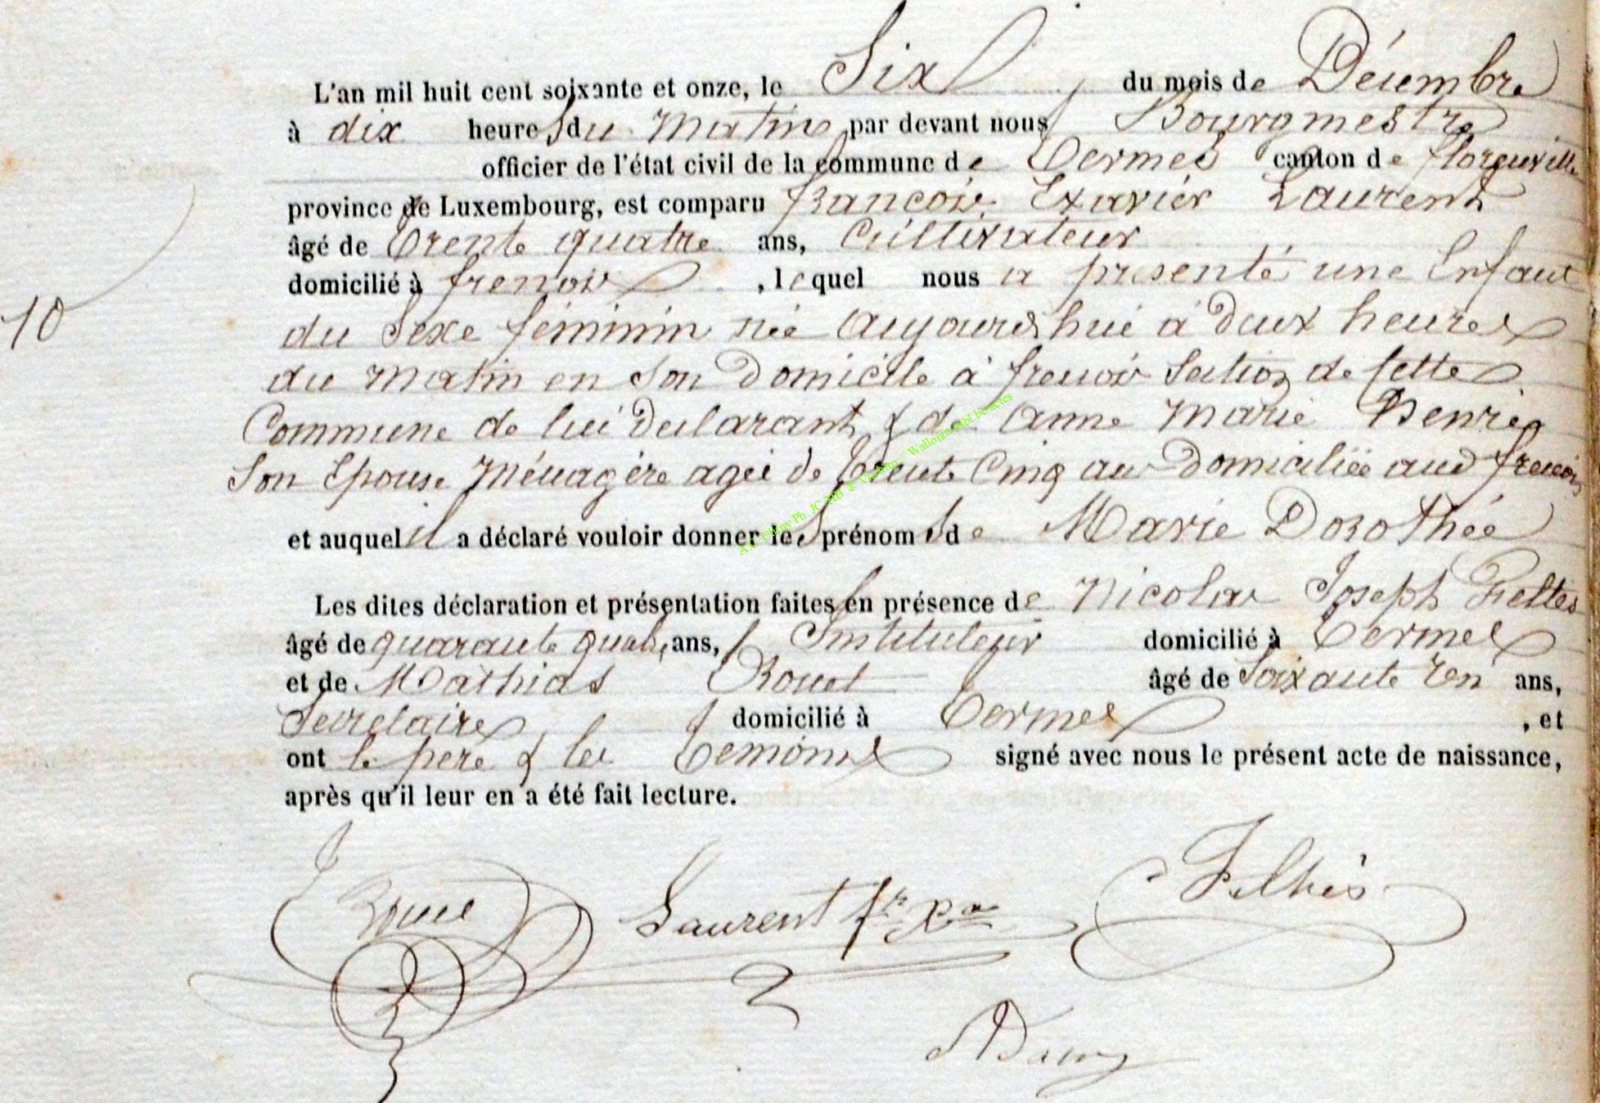 L'an mil huit cent soixante et onze, le Six du mois de Décembre
à dix heures du matin par devant nous Bourgmestre
officier de l'état civil de la commune de Termes canton de florenville
province de Luxembourg, est comparu francois Exavier Laurent
âgé de trente quatre ans, Cultivateur
domicilié à frenois, lequel nous a presenté une Enfant
10
du Sexe féminin née aujourdhui à deux heures
du matin en son Domicile à frenois Section de cette
Commune de lui declarant & de anne marie Henrion
Son Epouse Ménagère agée de trente Cinq ans Domiciliée aud frenois
et auquel il a déclaré vouloir donner les prénoms de Marie Dorothée
Les dites déclaration et présentation faites en présence de Nicolas Joseph Feltés
âgé de quarante quatre ans, Instituteur domicilié à Termes
et de Mathias Rouet âgé de Soixante ans,
Secretaire domicilié à Termes, et
ont le père & les temoins signé avec nous le présent acte de naissance,
après qu'il leur en a été fait lecture.
Laurent fr Xer